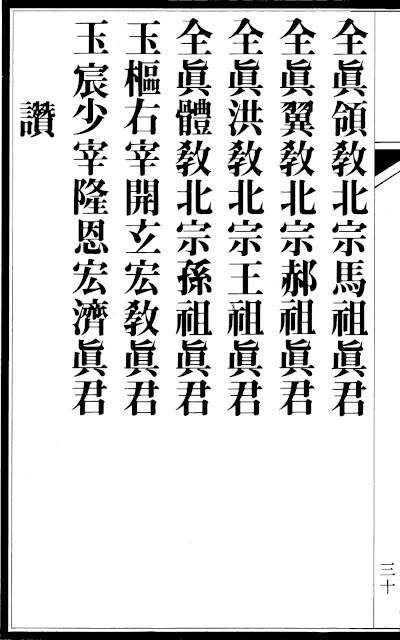 全眞領敎北宗馬祖眞君
全眞翼敎北宗郝祖眞君
全眞洪敎北宗王祖眞君
全眞體敎北宗孫祖眞君
玉樞右宰開玄宏敎眞君
玉宸少宰隆恩宏濟眞君
讚
三十